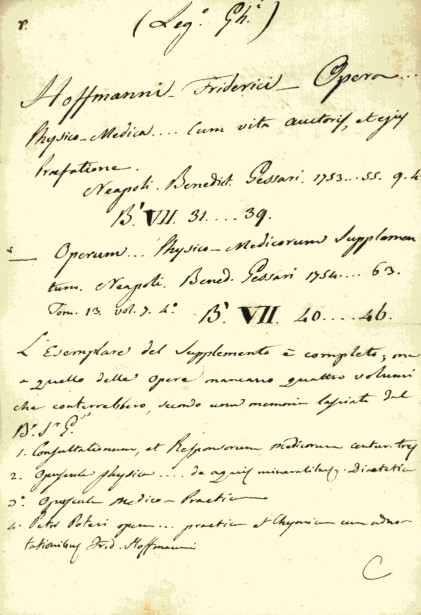 (Leg.º Gh.i)
Hoffmanni Friderici Opera...
Physico-Medica.... Cum vita auctoris, et ejus
Praefatione.
Neapoli. Benedict. Gessari. 1753...55. 9. 4.
B.ª VII. 31.....39.
— Operum... Physico-Medicorum Supplemen
tum. Neapoli. Bened. Gessari 1754.... 63.
Tom. 13. vol. 7. 4.º B.ª VII. 40.....46.
L'Esemplare del Supplemento è completo; ma
a quello delle opere mancano quattro volumi
che conterrebbero, secondo una memoria lasciata dal
1. Consultationum, et Responsorum medicorum centur. tres
2. Opuscula physica.... de aquis mineralibus; Diaetetica
3.º Opuscula Medico-Practica
4. Petri Poteri opera.... practica et Chymica cum adno-
tationibus Frid. Hoffmanni
C